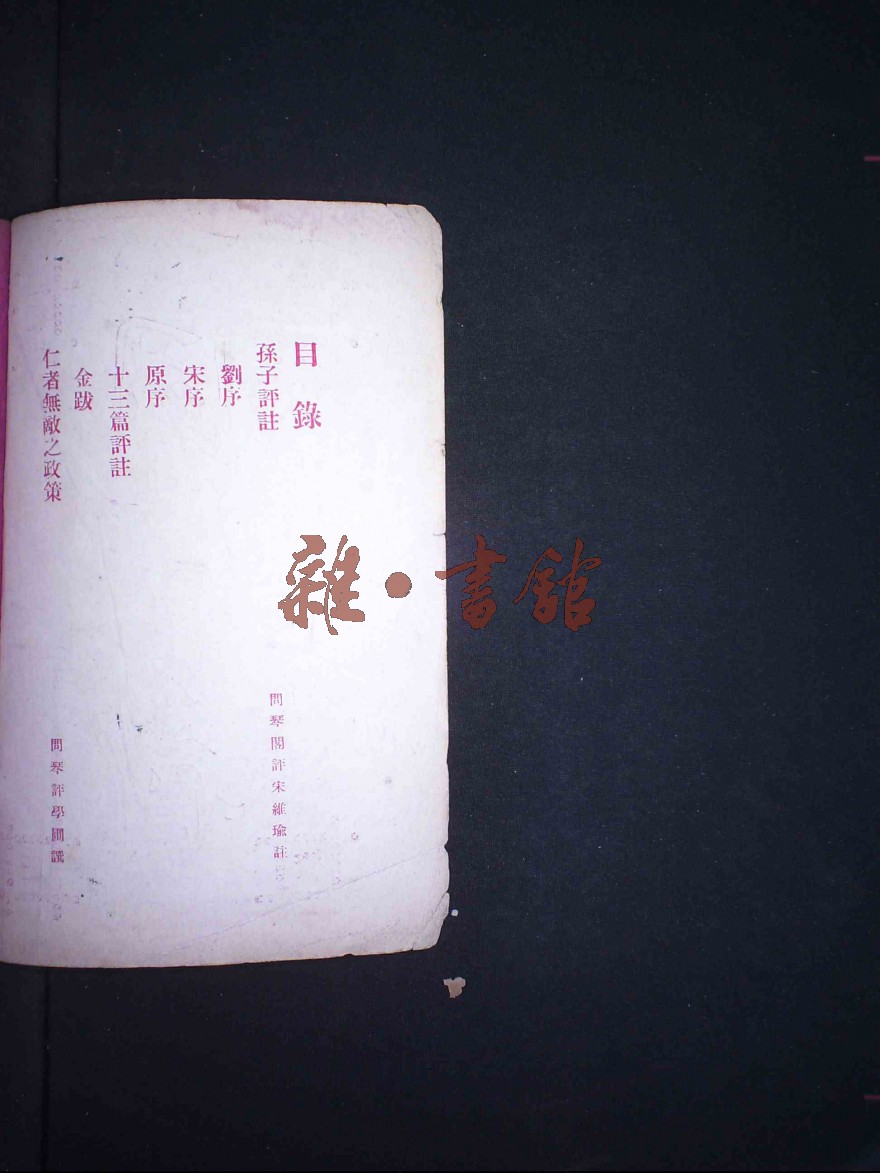 目錄
孫子評註
問琴閣評宋維瑜註
劉序
宋序
原序
十三篇評註
金跋
仁者無敵之政策
問琴評學圃譔
雜·書館